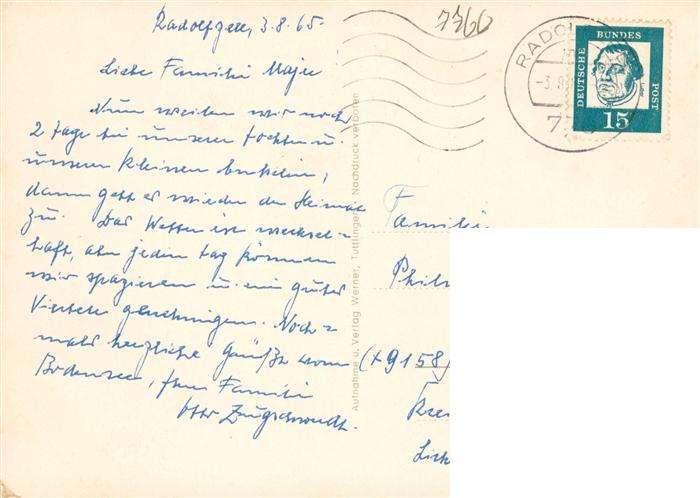 Radolfzell, 3.8.65.
Liebe Familie
Nun weilen wir noch
2 Tage bei unserer Tochter u.
unserem kleinen
dann geht es wieder der Heimat
zu. Das Wetter ist wechsel=
haft, aber jeden Tag können
wir spazieren u. ein guter
Viertele genehmigen. Noch=
mals herzliche Grüße vom
Bodensee, Ihre Familie
Otto
7760
RADOL
-3.8
77
DEUTSCHE
BUNDES
POST
15
Aufnahme u. Verlag Werner, Tuttlingen Nachdruck verboten
Familie
(+9158)